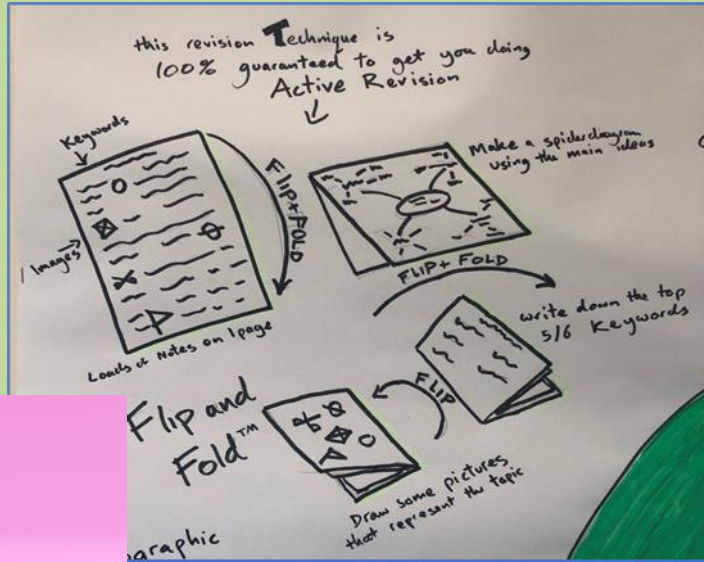 this revision Technique is
100% guaranteed to get you doing
Active Revision
Keywords
Images
Loads of Notes on 1 page
FLIP+FOLD
Make a spiderdiagram
using the main ideas
FLIP+ FOLD
write down the top
5/6 Keywords
FLIP
Draw some pictures
that represent the topic
Flip and
Fold™
ographic